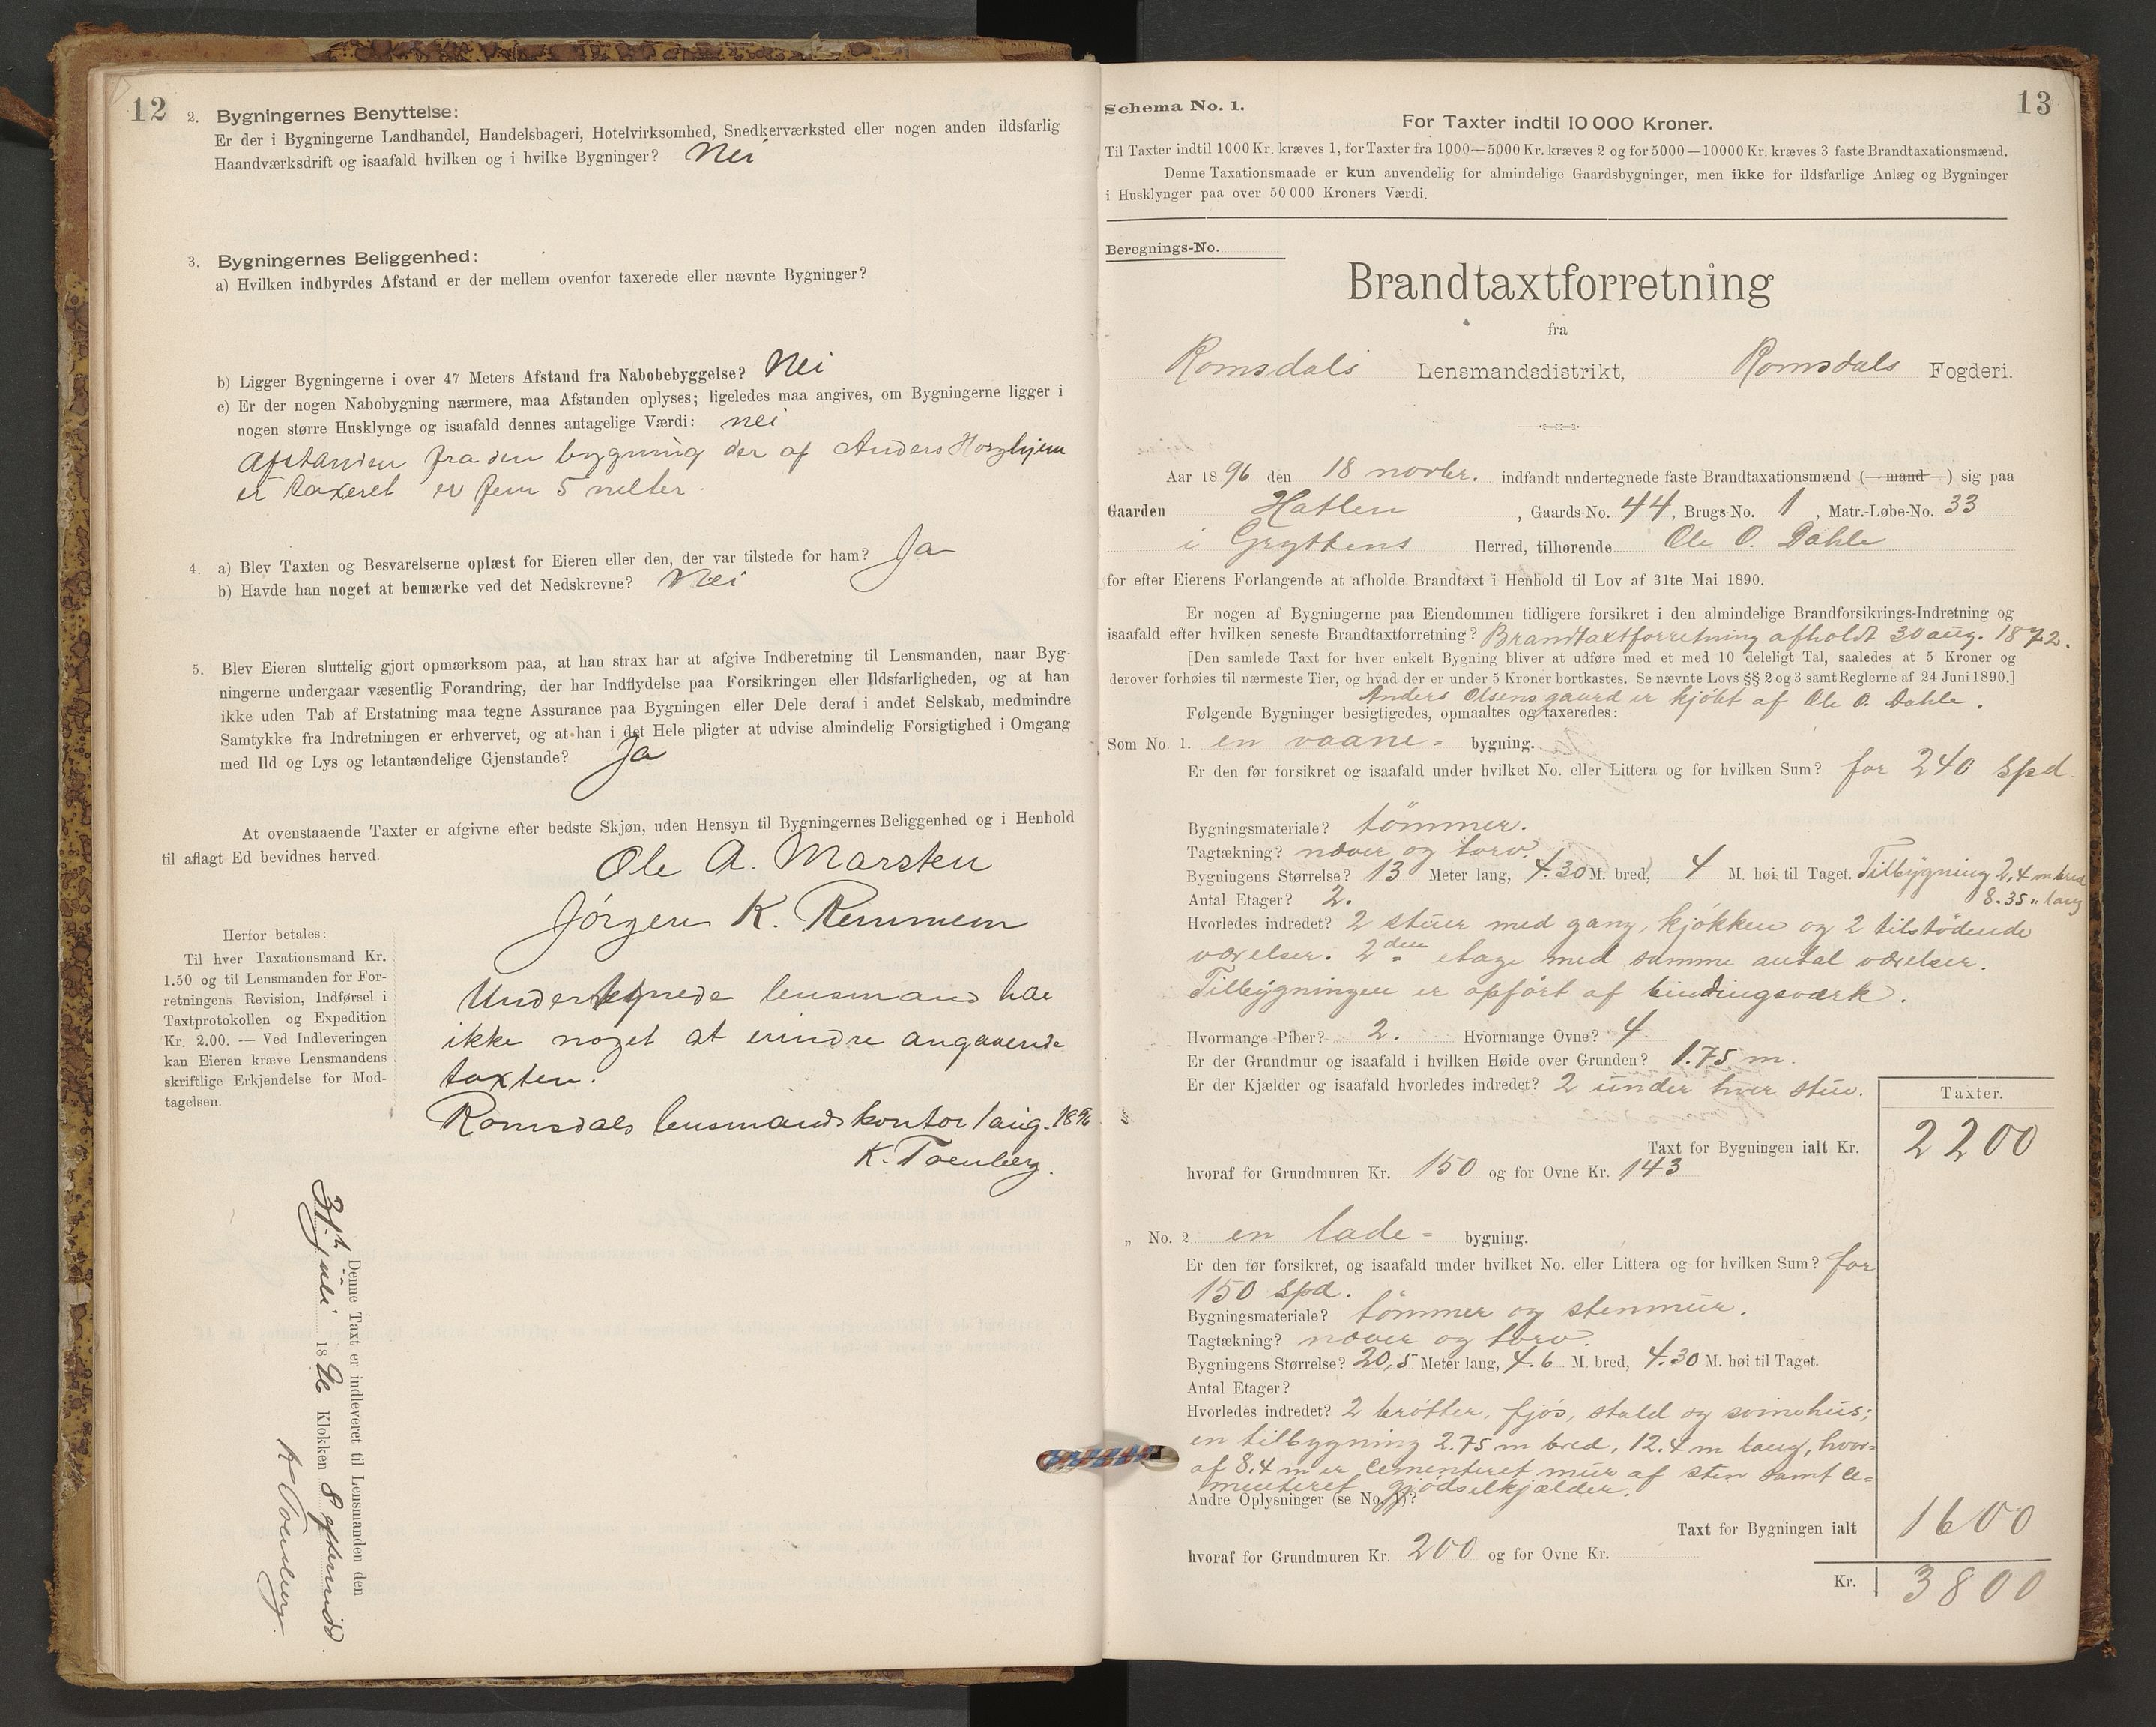 12
2. Bygningernes Benyttelse:
Er der i Bygningerne Landhandel, Handelsbageri, Hotelvirksomhed, Snedkerværksted eller nogen anden ildsfarlig
Haandværksdrift og isaafald hvilken og i hvilke Bygninger? Nei
3. Bygningernes Beliggenhed:
a) Hvilken indbyrdes Afstand er der mellem ovenfor taxerede eller nævnte Bygninger?
b) Ligger Bygningerne i over 47 Meters Afstand fra Nabobebyggelse? Nei
c) Er der nogen Nabobygning nærmere, maa Afstanden oplyses; ligeledes maa angives, om Bygningerne ligger i
nogen større Husklynge og isaafald dennes antagelige Værdi: nei
Afstanden fra den bygning der af Anders Horghjem
er taxeret er fem 5 metter.
4. a) Blev Taxten og Besvarelserne oplæst for Eieren eller den, der var tilstede for ham? Ja
b) Havde han noget at bemærke ved det Nedskrevne? Nei
5. Blev Eieren sluttelig gjort opmærksom paa, at han strax har at afgive Indberetning til Lensmanden, naar Byg-
ningerne undergaar væsentlig Forandring, der har Indflydelse paa Forsikringen eller Ildsfarligheden, og at han
ikke uden Tab af Erstatning maa tegne Assurance paa Bygningen eller Dele deraf i andet Selskab, medmindre
Samtykke fra Indretningen er erhvervet, og at han i det Hele pligter at udvise almindelig Forsigtighed i Omgang
med Ild og Lys og letantændelige Gjenstande? Ja
At ovenstaaende Taxter er afgivne efter bedste Skjøn, uden Hensyn til Bygningernes Beliggenhed og i Henhold
til aflagt Ed bevidnes herved.
Ole A. Marsten
Jörgen K. Remmem
Herfor betales:
Til hver Taxationsmand Kr.
1.50 og til Lensmanden for For-
retningens Revision, Indførsel i
Taxtprotokollen og Expedition
Kr. 2.00. — Ved Indleveringen
kan Eieren kræve Lensmandens
skriftlige Erkjendelse for Mod-
tagelsen.
Undertegnede lensmand har
ikke noget at erindre angaaende
taxten.
Romsdals lensmandskontor 1 aug. 1896
K. Toenberg.
Denne Taxt er indleveret til Lensmanden den
31th juli 1896 Klokken 8 eftermidd.
K Toenberg.
Schema No. 1.
13
For Taxter indtil 10 000 Kroner.
Til Taxter indtil 1000 Kr. kræves 1, for Taxter fra 1000—5000 Kr. kræves 2 og for 5000—10000 Kr. kræves 3 faste Brandtaxationsmænd.
Denne Taxationsmaade er kun anvendelig for almindelige Gaardsbygninger, men ikke for ildsfarlige Anlæg og Bygninger
i Husklynger paa over 50 000 Kroners Værdi.
Beregnings-No.
Brandtaxtforretning
fra
Romsdals Lensmandsdistrikt, Romsdals Fogderi.
Aar 1896 den 18 novbr. indfandt undertegnede faste Brandtaxationsmænd (—mand—) sig paa
Gaarden Hatlen, Gaards-No. 44, Brugs-No. 1, Matr.-Løbe-No. 33
i Gryttens Herred, tilhørende Ole O. Dahle
for efter Eierens Forlangende at afholde Brandtaxt i Henhold til Lov af 31te Mai 1890.
Er nogen af Bygningerne paa Eiendommen tidligere forsikret i den almindelige Brandforsikrings-Indretning og
isaafald efter hvilken seneste Brandtaxtforretning? Brandtaxtforretning afholdt 30 aug. 1872.
[Den samlede Taxt for hver enkelt Bygning bliver at udføre med et med 10 deleligt Tal, saaledes at 5 Kroner og
derover forhøies til nærmeste Tier, og hvad der er under 5 Kroner bortkastes. Se nævnte Lovs §§ 2 og 3 samt Reglerne af 24 Juni 1890.]
Anders Olsens gaard er kjöbt af Ole O. Dahle.
Følgende Bygninger besigtigedes, opmaaltes og taxeredes:
Som No. 1. en vaane- bygning.
Er den før forsikret og isaafald under hvilket No. eller Littera og for hvilken Sum? for 240 Spd.
Bygningsmateriale? tömmer.
Tagtækning? næver og torv.
Bygningens Størrelse? 13 Meter lang, 4.30 M. bred, 4 M. høi til Taget. Tilbygning 2,4 m bred
Antal Etager? 2. 8.35 " lang
Hvorledes indredet? 2 stuer med gang, kjökken og 2 tilstödende
værelser. 2den etage med samme antal værelser.
Tilbygningen er opfört af bindingsværk.
Hvormange Piber? 2. Hvormange Ovne? 4
Er der Grundmur og isaafald i hvilken Høide over Grunden? 1.75 m.
Er der Kjælder og isaafald hvorledes indredet? 2 under hver stue.
Taxter.
Taxt for Bygningen ialt Kr. 2200
hvoraf for Grundmuren Kr. 150 og for Ovne Kr. 143
„ No. 2 en lade- bygning.
Er den før forsikret, og isaafald under hvilket No. eller Littera og for hvilken Sum? for
150 Spd.
Bygningsmateriale? tömmer og stenmur.
Tagtækning? næver og torv.
Bygningens Størrelse? 20,5 Meter lang, 4.6 M. bred, 4.30 M. høi til Taget.
Antal Etager?
Hvorledes indredet? 2 tröften, fjös, stald og svinehus;
en tilbygning 2.75 m bred, 12.4 m lang, hvor-
af 8.4 m er cementeret mur af sten samt ce-
menteret gjödselkjælder.
Andre Oplysninger (se No. 1)?
Taxt for Bygningen ialt 1600
hvoraf for Grundmuren Kr. 200 og for Ovne Kr.
Kr. 3800